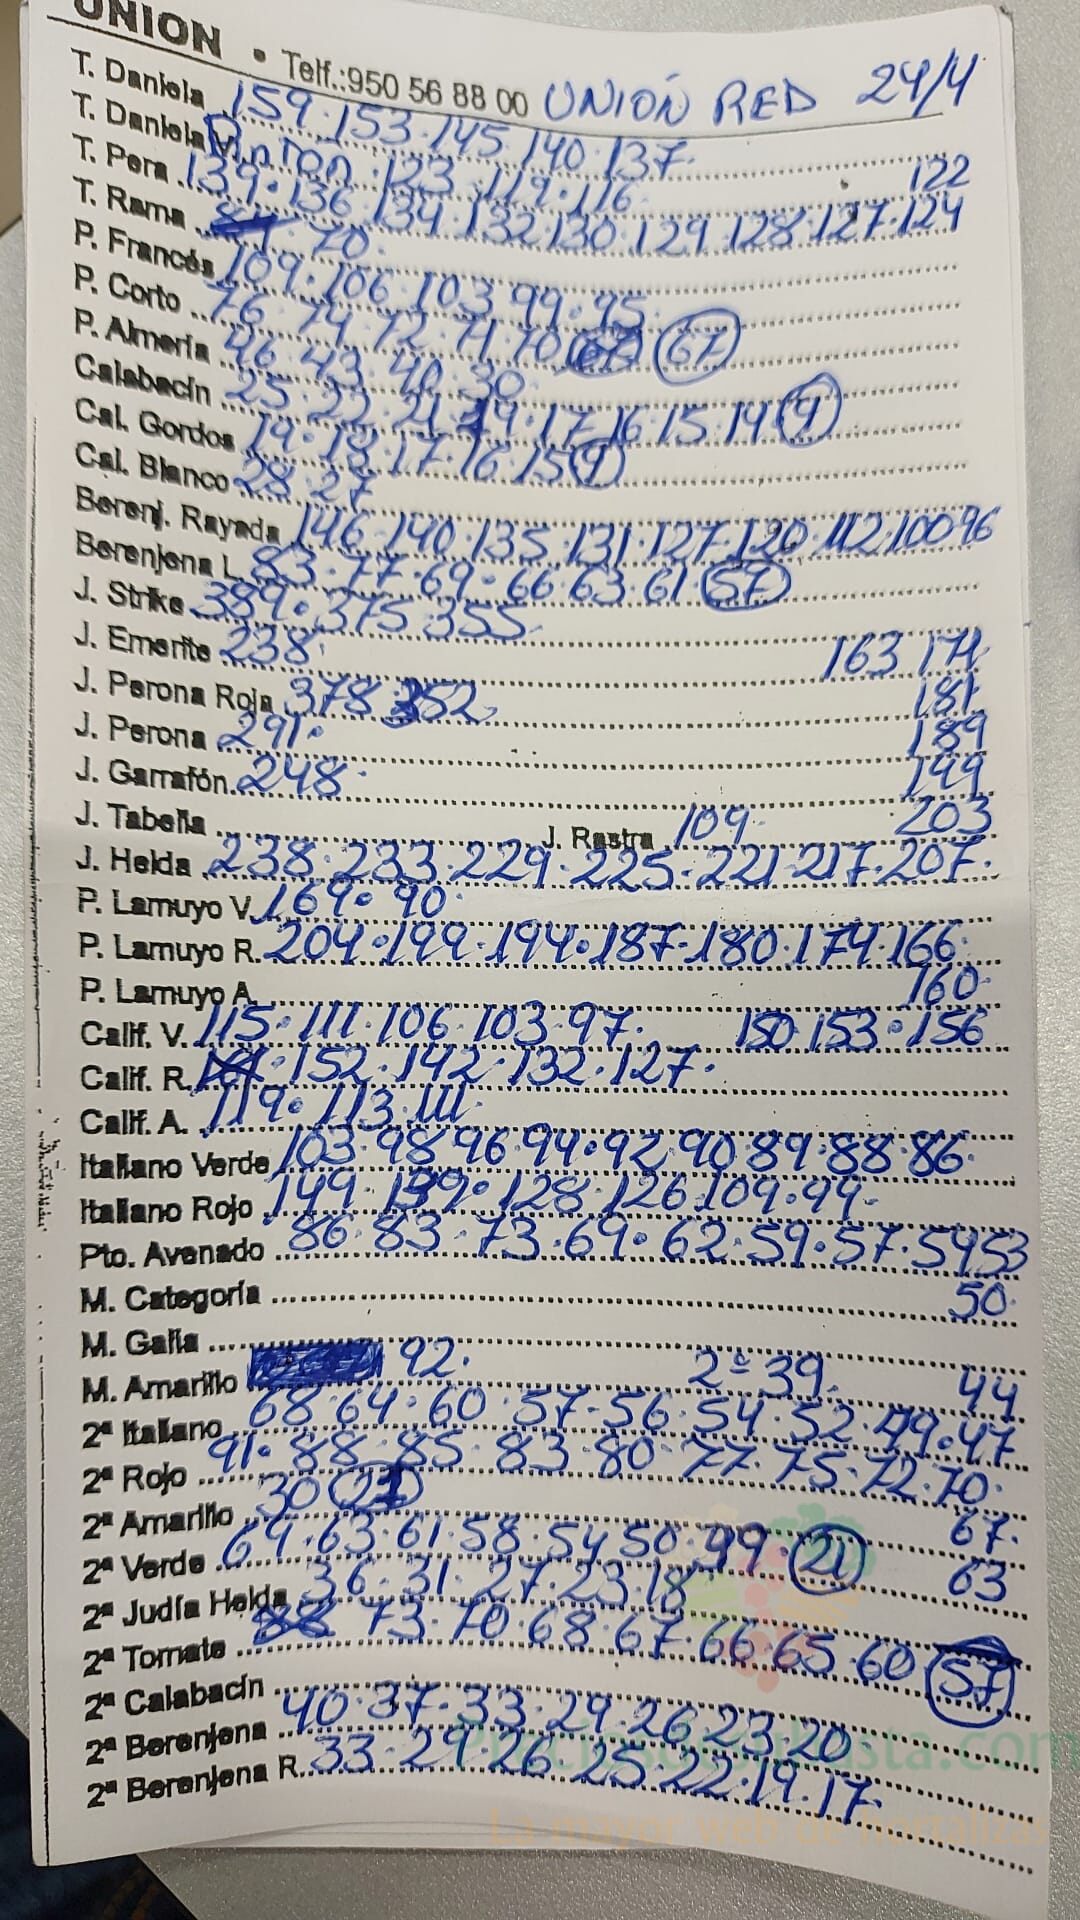 UNION • Telf.:950 56 88 00 UNIÓN RED 24/4
T. Daniela 159·153·145·140·137·
T. Daniela V. Pinton·123·119·116 122
T. Pera 139·136·134·132·130·129·128·127·124
T. Rama 70·
P. Francés 109·106·103·99·95
P. Corto 76·74·72·71·70 67
P. Almería 46·43·40·30·
Calabacín 25·22·21·19·17·16·15·14 9
Cal. Gordos 19·18·17·16·15 9
Cal. Blanco 28·27
Berenj. Rayada 146·140·135·131·127·120·112·100·96
Berenjena L. 83·77·69·66·63·61·57
J. Strike 389·375·355
J. Emerite 238· 163 174
J. Perona Roja 378·352 181
J. Perona 291· 189
J. Garrafón 248· 199
J. Tabella J. Rastra 109· 203
J. Helda 238·233·229·225·221·217·207·
P. Lamuyo V. 169·90·
P. Lamuyo R. 204·199·194·187·180·174·166·
P. Lamuyo A. 160·
Calif. V. 115·111·106·103·97· 150·153·156
Calif. R. 152·142·132·127·
Calif. A. 119·113·111·
Italiano Verde 103·98·96·94·92·90·89·88·86·
Italiano Rojo 149·139·128·126·109·99·
Pto. Avenado 86·83·73·69·62·59·57·54 53
M. Categoría 50·
M. Galia
M. Amarillo 92· 2ª 39 44
2ª Italiano 68·64·60·57·56·54·52·49·47
2ª Rojo 91·88·85·83·80·77·75·72·70·
2ª Amarillo 30 67·
2ª Verde 69·63·61·58·54·50·49·21 63
2ª Judía Helda 36·31·27·23·18
2ª Tomate 73·70·68·67·66·65·60 57
2ª Calabacín
2ª Berenjena 40·37·33·29·26·23·20
2ª Berenjena R. 33·29·26·25·22·19·17·
La mayor web de hortalizas